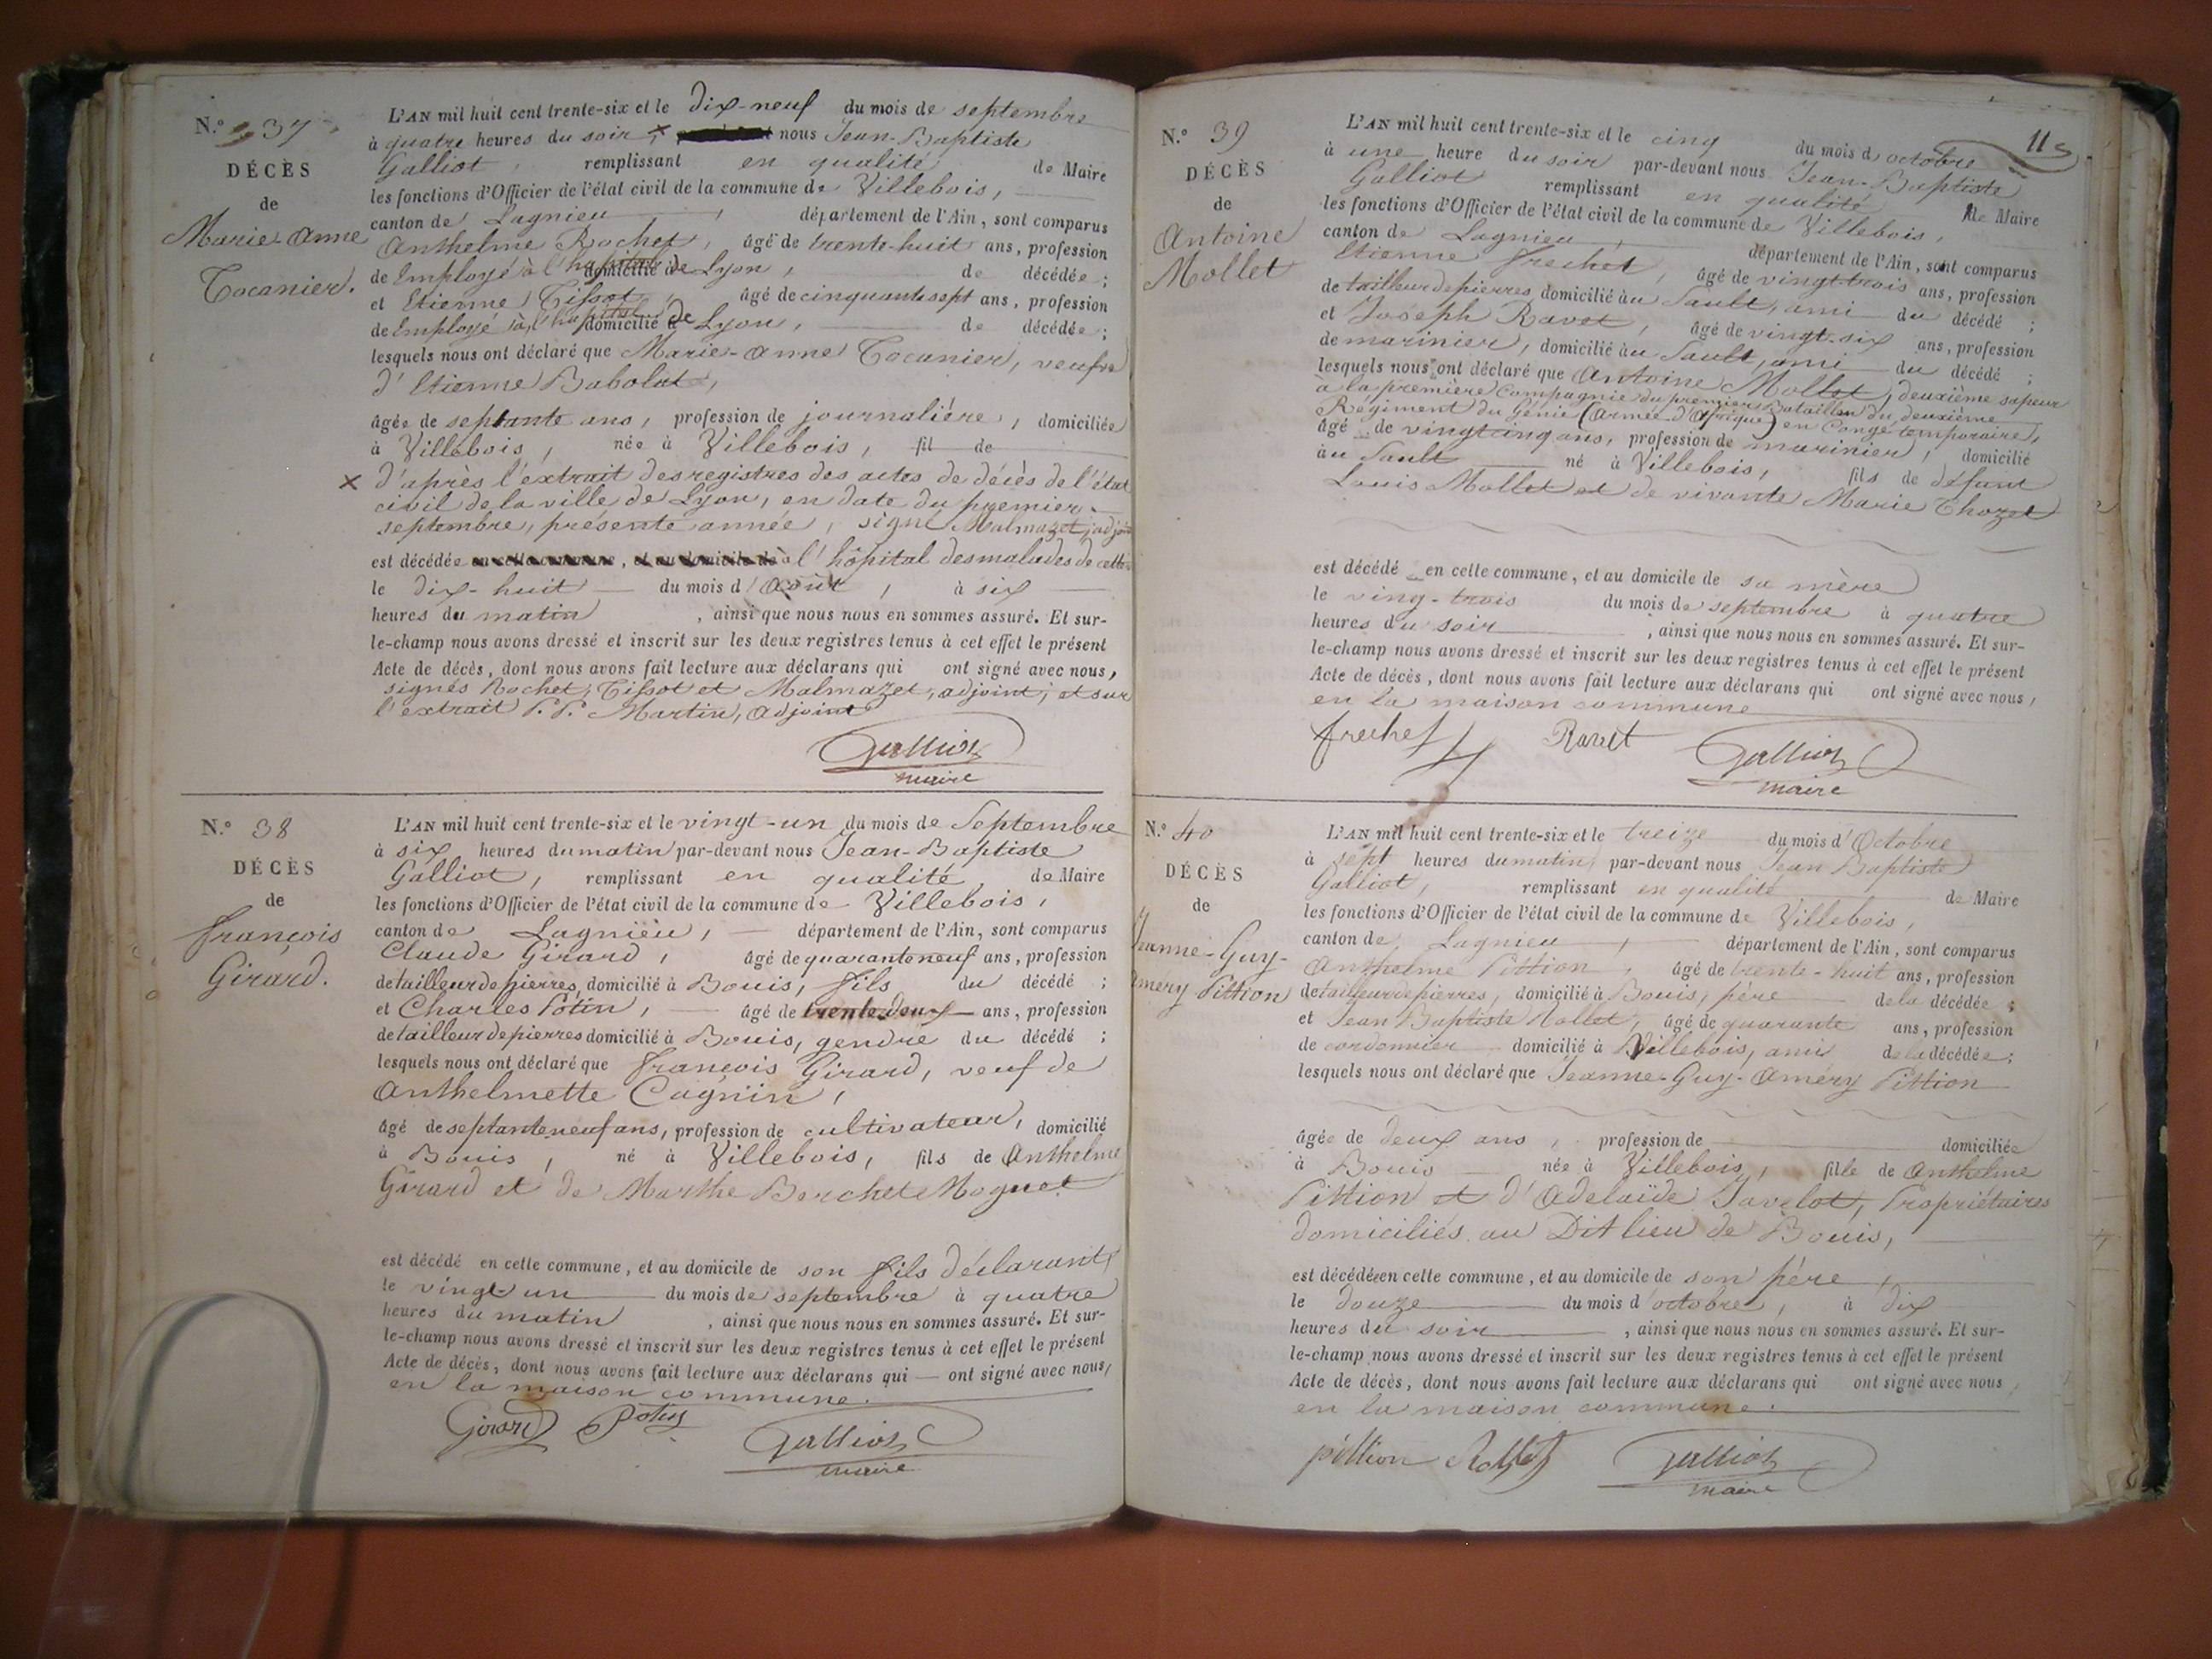 N.º 37
DÉCÈS
de
Marie-Anne
Tocanier.
L'AN mil huit cent trente-six et le dix-neuf du mois de septembre
à quatre heures du soir × nous Jean-Baptiste
Galliot remplissant en qualité de Maire
les fonctions d'Officier de l'état civil de la commune de Villebois,
canton de Lagnieu, département de l'Ain, sont comparus
Anthelme Rochet, âgé de trente-huit ans, profession
de Employé à l'hopital domicilié de Lyon, de décédée;
et Etienne Tissot, âgé de cinquante sept ans, profession
de Employé à l'hopital domicilié de Lyon, de décédée;
lesquels nous ont déclaré que Marie-Anne Tocanier, veufve
d'Etienne Babolat,
âgée de septante ans, profession de journalière, domiciliée
à Villebois, née à Villebois, fil de
× d'après l'extrait des registres des actes de décès de l'état
civil de la ville de Lyon, en date du premier
septembre, présente année, signé Malmazet, adjoint
est décédée à l'hôpital des malades de cette
le dix-huit du mois d'Août, à six
heures du matin, ainsi que nous nous en sommes assuré. Et sur-
le-champ nous avons dressé et inscrit sur les deux registres tenus à cet effet le présent
Acte de décès, dont nous avons fait lecture aux déclarans qui ont signé avec nous,
signés Rochet, Tissot et Malmazet, adjoint, et sur
l'extrait Martin, adjoint
Galliot
maire
N.º 38
DÉCÈS
de
François
Girard.
L'AN mil huit cent trente-six et le vingt-un du mois de Septembre
à six heures du matin par-devant nous Jean-Baptiste
Galliot, remplissant en qualité de Maire
les fonctions d'Officier de l'état civil de la commune de Villebois,
canton de Lagnieu, département de l'Ain, sont comparus
Claude Girard, âgé de quarante neuf ans, profession
de tailleur de pierres, domicilié à Bouis, fils du décédé;
et Charles Potin, âgé de trente deux ans, profession
de tailleur de pierres domicilié à Bouis, gendre du décédé;
lesquels nous ont déclaré que François Girard, veuf de
Anthelmette Cagnin,
âgé de septante neuf ans, profession de cultivateur, domicilié
à Bouis, né à Villebois, fils de Anthelme
Girard et de Marthe Berchet Moguet
est décédé en cette commune, et au domicile de son fils déclarant,
le vingt-un du mois de septembre à quatre
heures du matin, ainsi que nous nous en sommes assuré. Et sur-
le-champ nous avons dressé et inscrit sur les deux registres tenus à cet effet le présent
Acte de décès, dont nous avons fait lecture aux déclarans qui — ont signé avec nous,
en la maison commune.
Girard Potin
Galliot
maire
115
N.º 39
DÉCÈS
de
Antoine
Mollet
L'AN mil huit cent trente-six et le cinq du mois d'octobre
à une heure du soir par-devant nous Jean-Baptiste
Galliot remplissant en qualité de Maire
les fonctions d'Officier de l'état civil de la commune de Villebois,
canton de Lagnieu, département de l'Ain, sont comparus
Etienne Frechet, âgé de vingt-trois ans, profession
de tailleur de pierres, domicilié au Sault, ami du décédé;
et Joseph Ravet, âgé de vingt-six ans, profession
de marinier, domicilié au Sault, ami du décédé;
lesquels nous ont déclaré que Antoine Mollet, deuxième sapeur
à la première Compagnie du premier Bataillon du deuxième
Régiment du Génie (Armée d'Afrique) en Congé temporaire,
âgé de vingt cinq ans, profession de marinier, domicilié
au Sault né à Villebois, fils de défunt
Louis Mollet et de vivante Marie Thozet
est décédé en cette commune, et au domicile de sa mère
le ving-trois du mois de septembre à quatre
heures du soir, ainsi que nous nous en sommes assuré. Et sur-
le-champ nous avons dressé et inscrit sur les deux registres tenus à cet effet le présent
Acte de décès, dont nous avons fait lecture aux déclarans qui ont signé avec nous,
en la maison commune
frechet Ravet
Galliot
maire
N.º 40
DÉCÈS
de
Jeanne-Guy-
Améry Pittion
L'AN mil huit cent trente-six et le treize du mois d'Octobre
à sept heures du matin, par-devant nous Jean Baptiste
Galliot, remplissant en qualité de Maire
les fonctions d'Officier de l'état civil de la commune de Villebois,
canton de Lagnieu, département de l'Ain, sont comparus
Anthelme Pittion, âgé de trente-huit ans, profession
de tailleur de pierres, domicilié à Bouis, père de la décédée;
et Jean Baptiste Mollet, âgé de quarante ans, profession
de cordonnier domicilié à Villebois, ami de la décédée;
lesquels nous ont déclaré que Jeanne-Guy-Améry Pittion
âgée de deux ans, profession de domiciliée
à Bouis née à Villebois, fille de Anthelme
Pittion et d'Adelaïde Javelot, Propriétaires
domiciliés au Dit lieu de Bouis,
est décédée en cette commune, et au domicile de son père,
le douze du mois d'octobre, à dix
heures du soir, ainsi que nous nous en sommes assuré. Et sur-
le-champ nous avons dressé et inscrit sur les deux registres tenus à cet effet le présent
Acte de décès, dont nous avons fait lecture aux déclarans qui ont signé avec nous
en la maison commune.
pittion
Galliot
maire